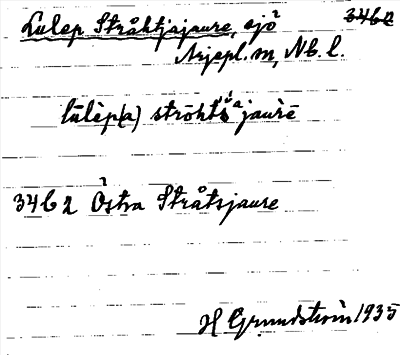 Lulep Stråktjajaure, sjö 3462
Arjepl. m, Nb. l.
lūlēp(a) strōkt́såjaurē
3462 Östra Stråtsjaure
H Grundström 1935